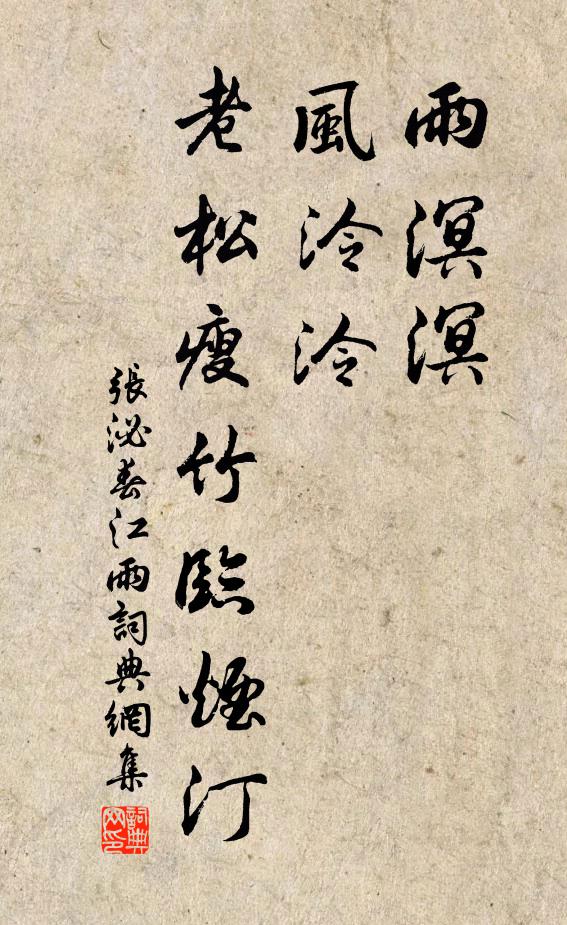 雨溟溟
風泠泠
老松瘦竹臨煙汀
張泌春江雨詞典網集
詞典
网印